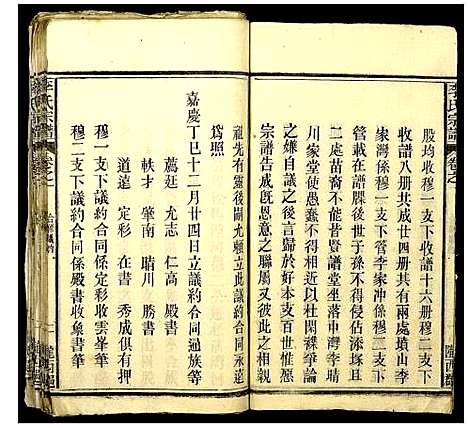 李氏宗譜
卷之
股均收穆一支下收譜十六册穆二支下
收譜八册共成廿四册共有兩處墳山李
家灣係穆一支下管李家冲係穆二支下
管載在譜牒後世子孫不得侵佔添塚且
二處苗裔不能偕賢譜堂坐落中灣李晴
川家擧使愚蠢不得相近以杜閑襍爭論
之嫌自議之後言歸於好本支百世惟愿
宗譜告成旣恩意之聯屬又彼此之相親
祖先有靈後嗣允賴立此議約合同永遠
爲照
嘉慶丁巳十二月廿四日立議約合同通族等
薦廷 尤志 仁高 殿書
軼才 肇南 晴川 勝書
道遠 定彩 在書 秀成俱有押
穆一支下議約合同係定彩收雲峯筆
穆二支下議約合同係殿書收象書筆
李氏宗譜
卷之
隴西郡